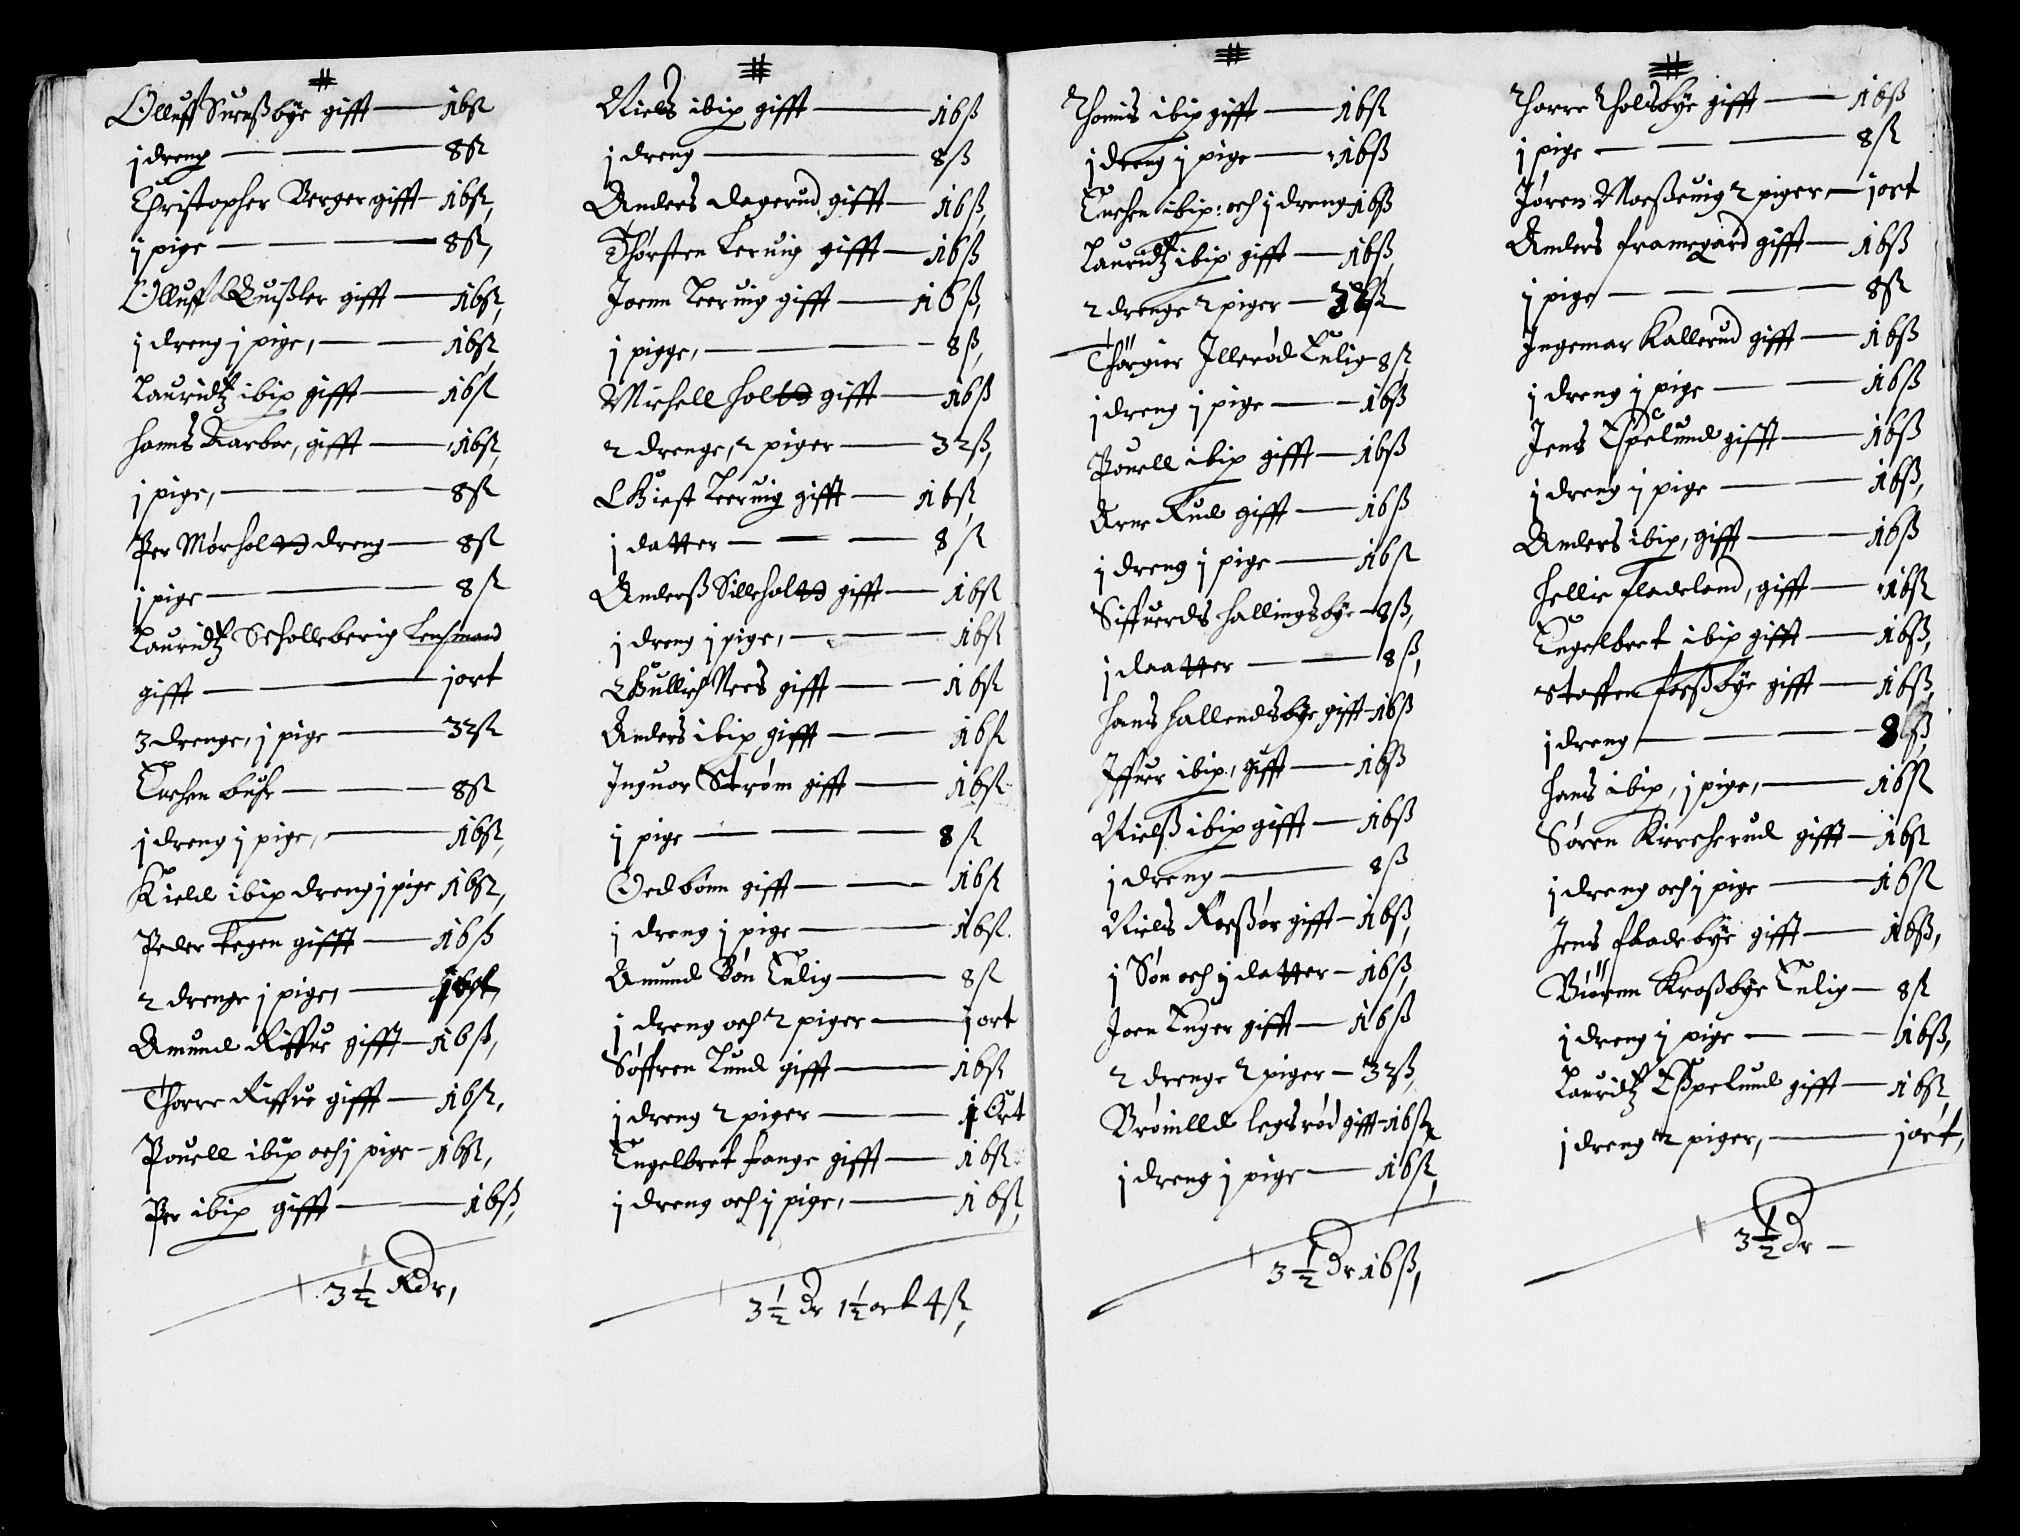 Olluff Sureßbye gifft — 16ß
j dreng — 8ß
Christopher Berger gifft — 16ß,
j pige — 8ß,
Olluff Quißler gifft — 16ß,
j dreng j pige, — 16ß,
Lauridtz ibip gifft — 16ß
Hanns Karboe, gifft — 16ß,
j pige, — 8ß
Per Mørholtt dreng — 8ß
j pige — 8ß
Lauridtz Scholleberig Lensmand
gifft — j ort
3 drenge, j pige — 32ß
Enchen buhr — 8ß
j dreng j pige, — 16ß,
Kield ibip dreng j pige 16ß,
Peder Tegen gifft — 16ß
2 drenge j pige, —
Amund Riffue gifft — 16ß,
Thorre Riffue gifft — 16ß,
Pouell ibip och j pige — 16ß,
Per ibip gifft — 16ß,
3½ Rdr,
Niels ibip gifft — 16ß
j dreng — 8ß
Anders dagerud gifft — 16ß,
Thorsten Leruig gifft — 16ß
Joenn Leeruig gifft — 16ß,
j pigge, — 8ß,
Michell holtt gifft — 16ß
2 drenge, 2 piger — 32ß,
Giest Leeruig gifft — 16ß,
j datter — 8ß
Anderß Silleholtt gifft — 16ß
j dreng j pige, — 16ß
Gullich Nees gifft — 16ß
Anders ibip gifft — 16ß
Inguor Strøm gifft — 16ß
j pige — 8ß
Oedbønn gifft — 16ß
j dreng j pige — 16ß.
Amund Bøn Enlig — 8ß
j dreng och 2 piger — j ort
Søffren Lund gifft — 16ß
j dreng 2 piger — 1 Ort
Engelbret Fange gifft — 16ß
j dreng och j pige, — 16ß,
3½ Dr 1½ ort 4ß,
Thonnis ibip gifft — 16ß
j dreng j pige — 16ß
Enchen ibip: och j dreng 16ß
Lauridtz ibip gifft — 16ß,
2 drenge 2 piger — 32ß
Thørgier Illerød Enlig 8ß,
j dreng j pige — 16ß
Pouell ibip gifft — 16ß
Arne Rud gifft — 16ß
j dreng j pige — 16ß
Siffuerds Hallingsbye — 8ß,
j daatter — 8ß,
Hans Hallendsbye gifft 16ß
Iffuer ibip, gifft — 16ß
Nielß ibip gifft — 16ß
j dreng — 8ß
Niels Roeßør gifft — 16ß,
j Søn och j datter — 16ß,
Joen Enger gifft — 16ß
2 drenge 2 piger — 32ß,
Brønilld legsrød gifft — 16ß
j dreng j pige — 16ß,
3½ Dr 16ß,
Thorre Tholsbye gifft — 16ß
j pige — 8ß
Jøren Moeßeuig 2 piger — j ort
Anders framegard gifft — 16ß
j pige — 8ß
Ingemar Kallerud gifft — 16ß
j dreng j pige — 16ß
Jens Espelund gifft — 16ß
j dreng j pige — 16ß,
Anders ibip, gifft — 16ß
Hellie Fladeland, gifft — 16ß
Engelbret ibip gifft — 16ß,
Staffen Foeßbye gifft — 16ß,
j dreng — 8ß,
Hans ibip, j pige, — 16ß
Søren Kircherud gifft — 16ß
j dreng och j pige — 16ß
Jens fladebye gifft — 16ß,
Biörnn Kroßbye Enlig — 8ß
j dreng j pige — 16ß,
Lauridtz Eßpelund gifft — 16ß,
j dreng 2 piger, — j ort,
3½ Dr —